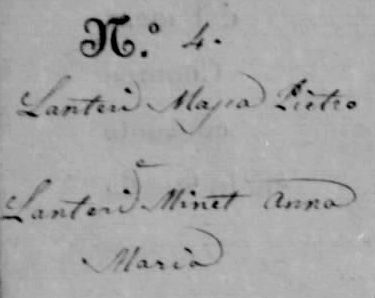 N.º 4.
Lanteri Majia Pietro
e
Lanteri Minet Anna
Maria